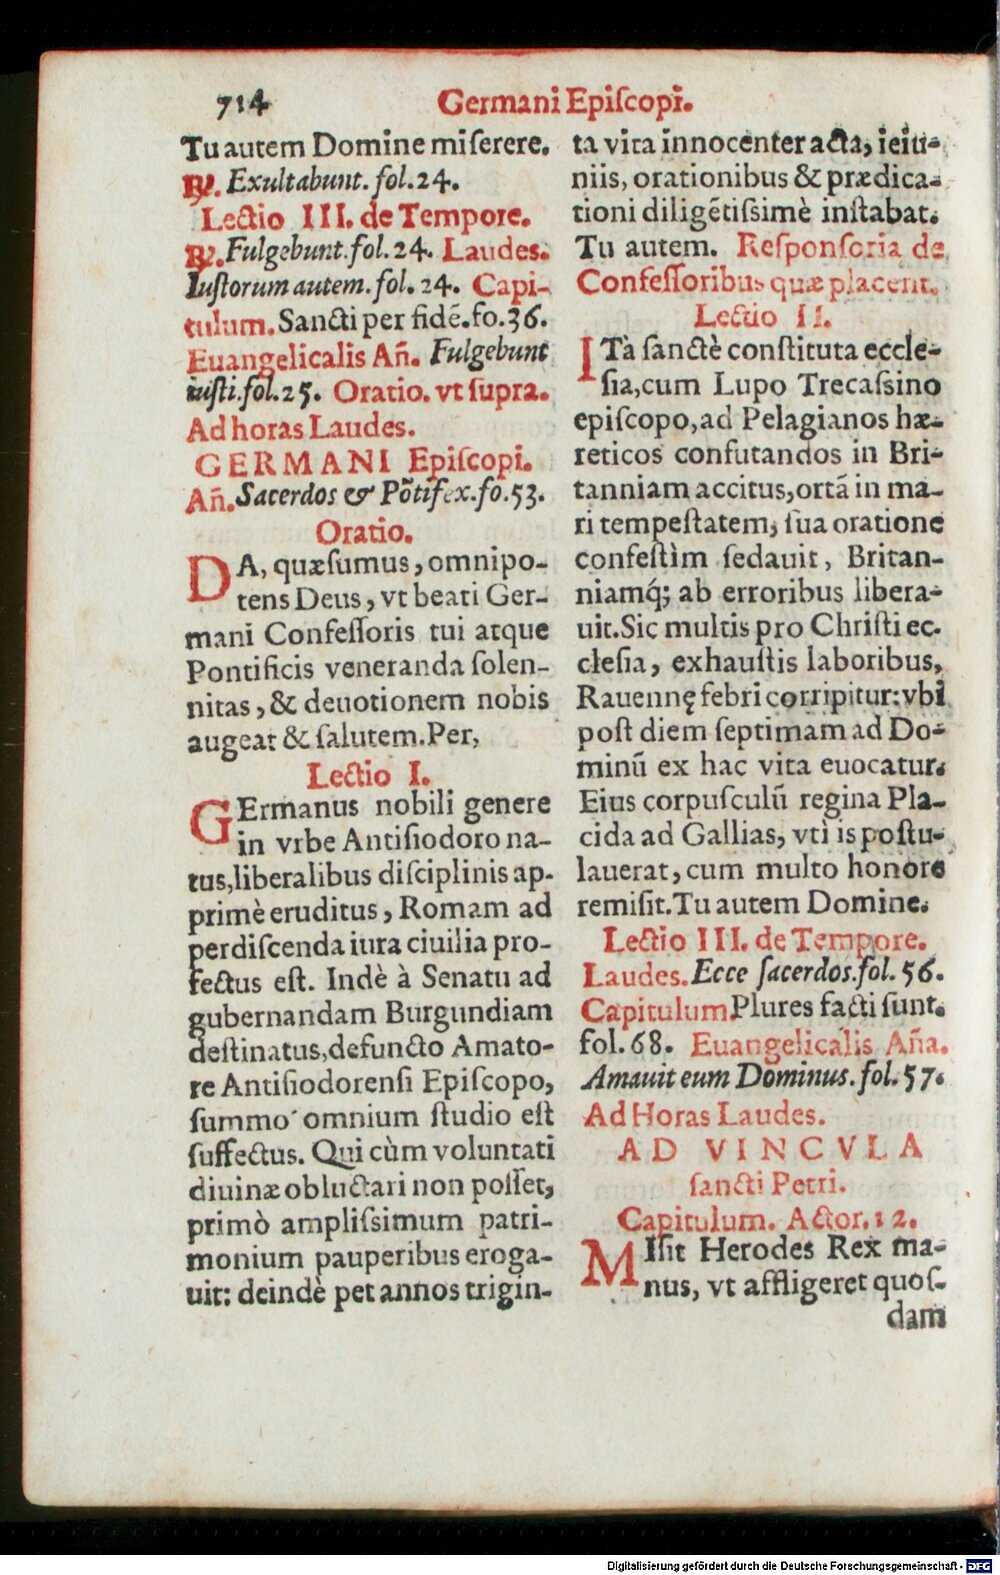 714
Germani Epiſcopi.
Tu autem Domine miſerere.
℟. Exultabunt. fol. 24.
Lectio III. de Tempore.
℟. Fulgebunt. fol. 24. Laudes.
Iuſtorum autem. fol. 24. Capi-
tulum. Sancti per fidē. fo. 36.
Euangelicalis Añ. Fulgebunt
iuſti. fol. 25. Oratio. vt ſupra.
Ad horas Laudes.
GERMANI Epiſcopi.
Añ. Sacerdos & Põtifex. fo. 53.
Oratio.
DA, quæſumus, omnipo-
tens Deus, vt beati Ger-
mani Confeſſoris tui atque
Pontificis veneranda ſolen-
nitas, & deuotionem nobis
augeat & ſalutem. Per,
Lectio I.
GErmanus nobili genere
in vrbe Antiſiodoro na-
tus, liberalibus diſciplinis ap-
primè eruditus, Romam ad
perdiſcenda iura ciuilia pro-
fectus eſt. Indè à Senatu ad
gubernandam Burgundiam
deſtinatus, defuncto Amato-
re Antiſiodorenſi Epiſcopo,
ſummo omnium ſtudio eſt
ſuffectus. Qui cùm voluntati
diuinæ obluctari non poſſet,
primò ampliſsimum patri-
monium pauperibus eroga-
uit: deindè pet annos trigin-
ta vita innocenter acta, ieiu-
niis, orationibus & prædica-
tioni diligētiſsimè inſtabat.
Tu autem. Reſponſoria de
Confeſſoribus quæ placent.
Lectio II.
ITà ſanctè conſtituta eccle-
ſia, cum Lupo Trecaſsino
epiſcopo, ad Pelagianos hæ-
reticos confutandos in Bri-
tanniam accitus, ortā in ma-
ri tempeſtatem, ſua oratione
confeſtìm ſedauit, Britan-
niamq́; ab erroribus libera-
uit. Sic multis pro Chriſti ec-
cleſia, exhauſtis laboribus,
Rauennę febri corripitur: vbi
poſt diem ſeptimam ad Do-
minū ex hac vita euocatur.
Eius corpuſculū regina Pla-
cida ad Gallias, vtì is poſtu-
lauerat, cum multo honore
remiſit. Tu autem Domine.
Lectio III. de Tempore.
Laudes. Ecce ſacerdos. fol. 56.
Capitulum Plures facti ſunt.
fol. 68. Euangelicalis Aña.
Amauit eum Dominus. fol. 57.
Ad Horas Laudes.
AD VINCVLA
ſancti Petri.
Capitulum. Actor. 12.
MIſit Herodes Rex ma-
nus, vt affligeret quoſ-
dam
Digitalisierung gefördert durch die Deutsche Forschungsgemeinschaft - DFG